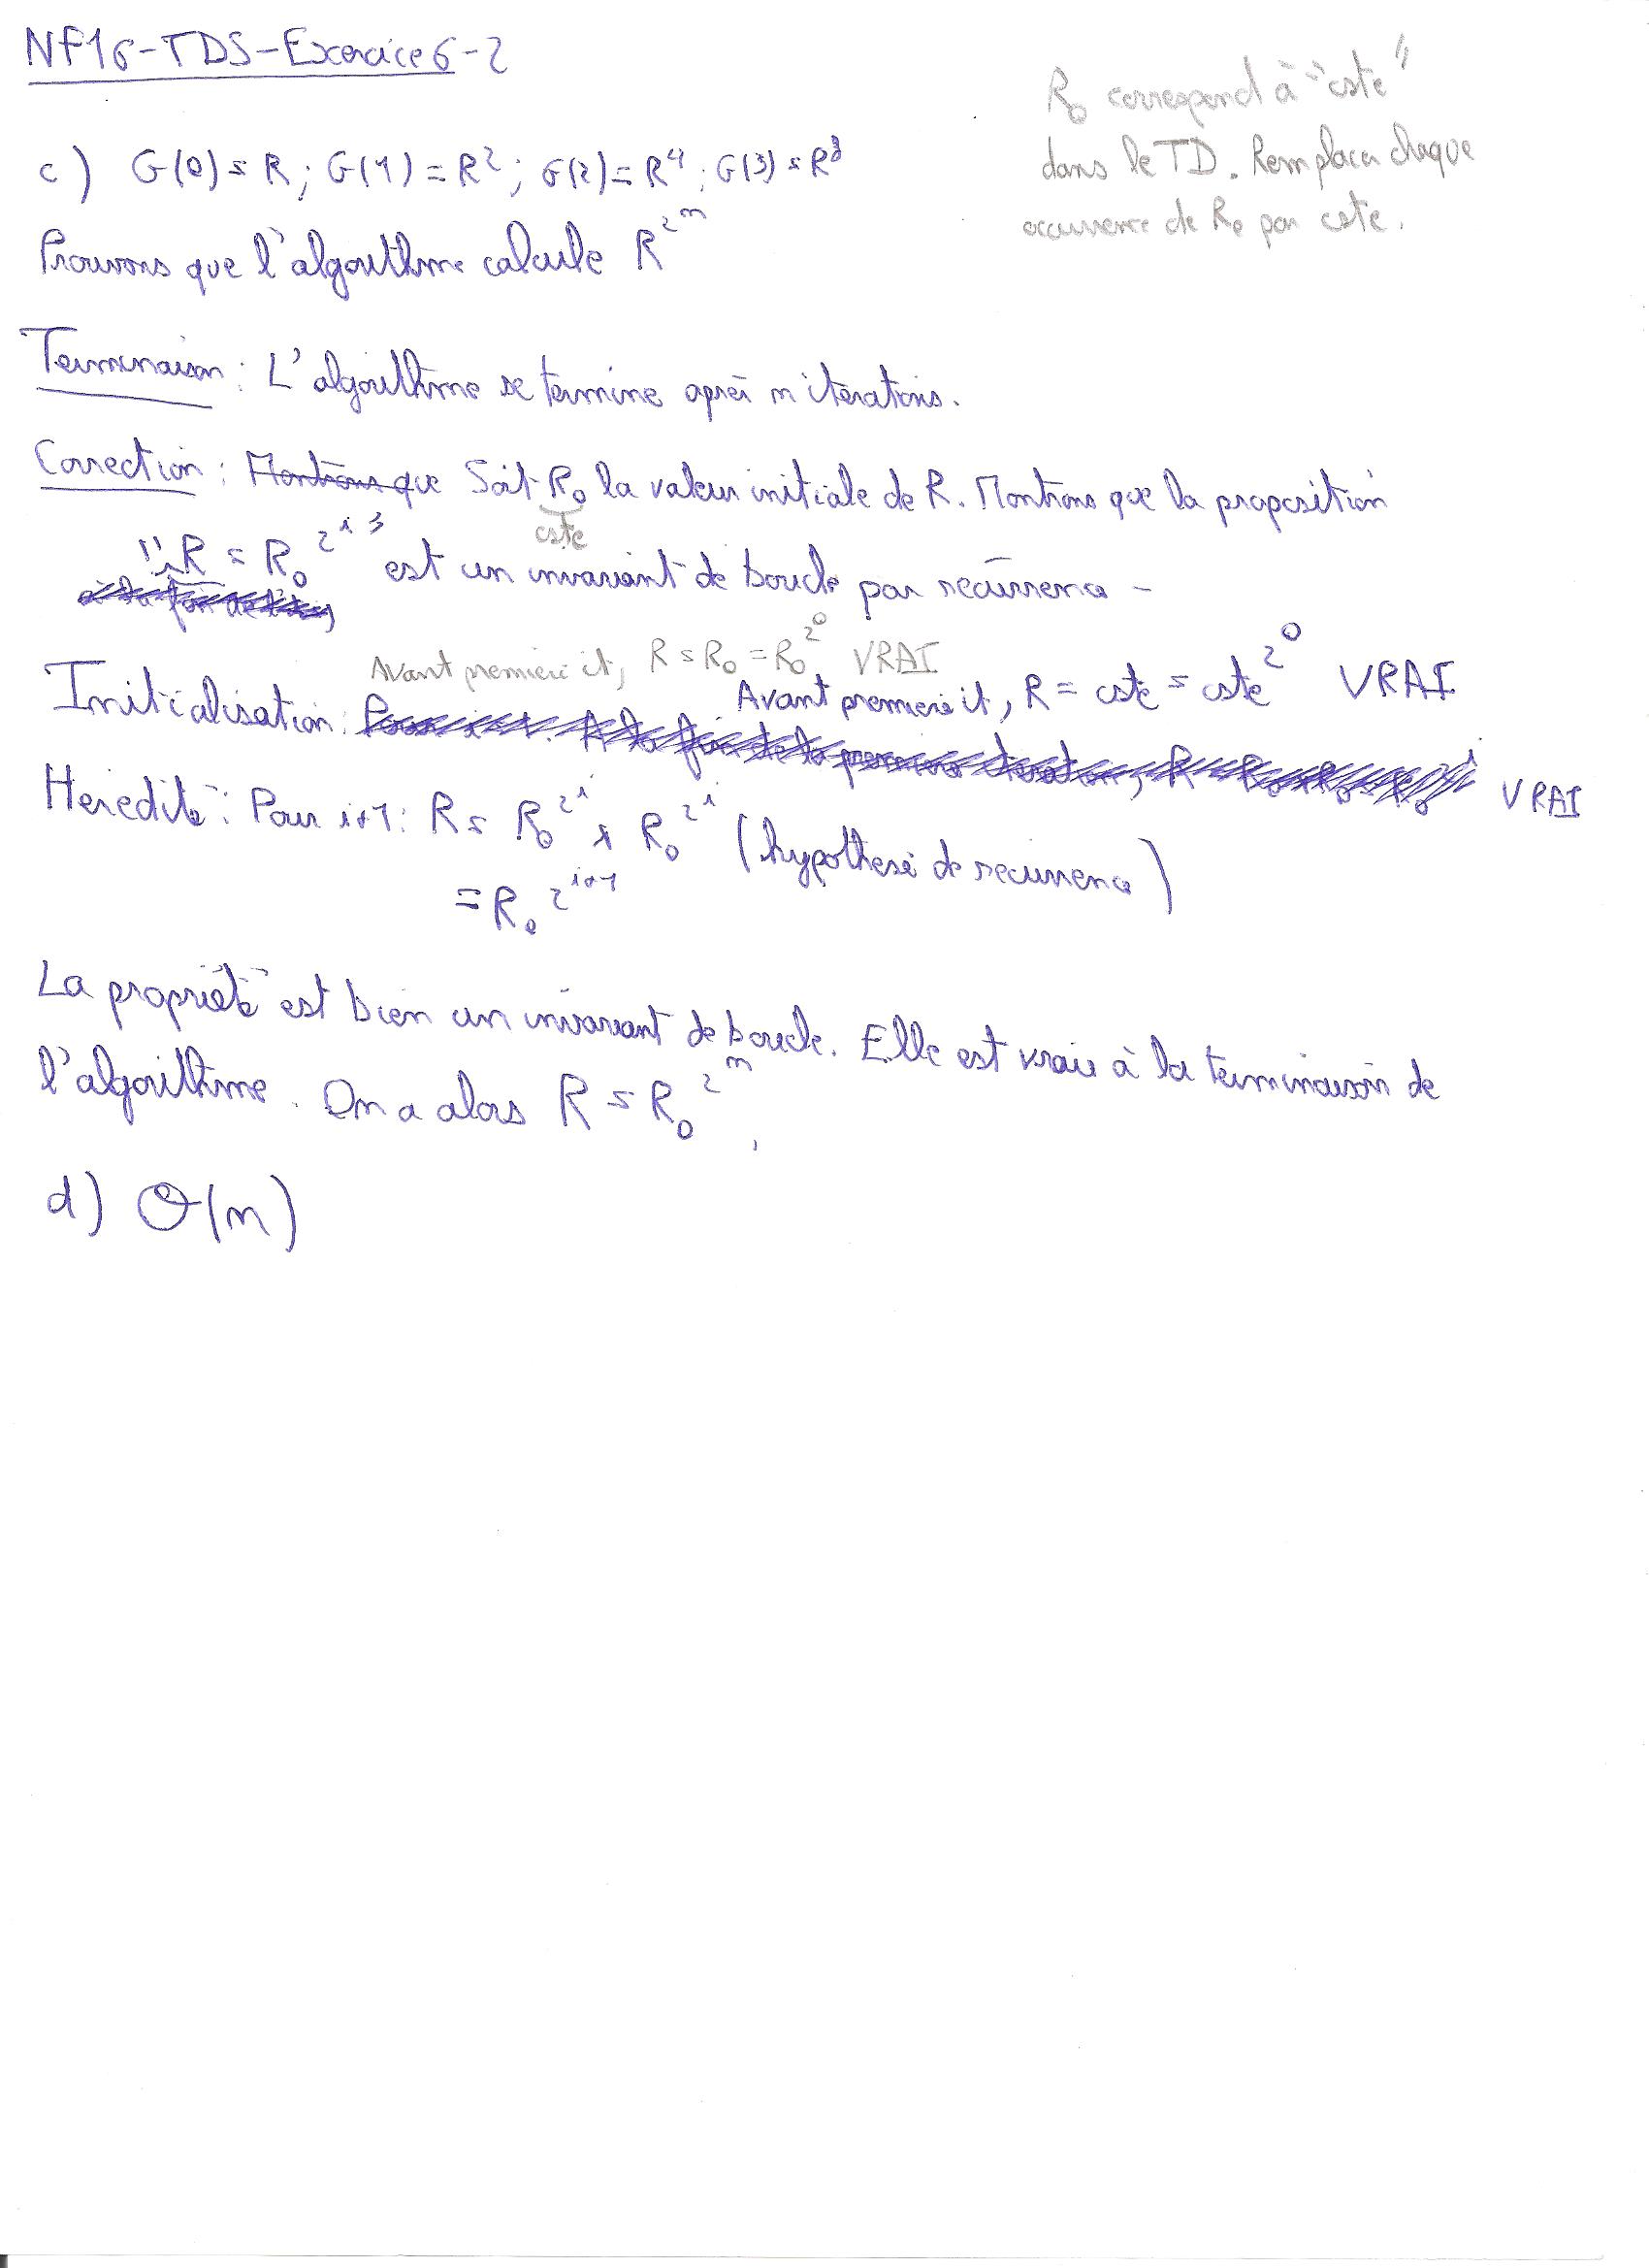 NF16-TD5-Exercice 6-2
R₀ correspond à "cste"
dans le TD. Remplacer chaque
occurrence de R₀ par cste.
c) G(0) = R ; G(1) = R² ; G(2) = R⁴ ; G(3) = R⁸
Prouvons que l'algorithme calcule R^2^n
Terminaison : L'algorithme se termine après n itérations.
Correction : Montrons que Soit R₀ la valeur initiale de R. Montrons que la proposition
cste
"R = R₀^2^i" est un invariant de boucle par récurrence -
Avant première it, R = R₀ = R₀^2^0 VRAI
Initialisation : Avant première it, R = cste = cste^2^0 VRAI
VRAI
Hérédité : Pour i+1 : R = R₀^2^i * R₀^2^i (hypothèse de récurrence)
= R₀^2^i+1
La propriété est bien un invariant de boucle. Elle est vraie à la terminaison de
l'algorithme. On a alors R = R₀^2^n.
d) Θ(n)